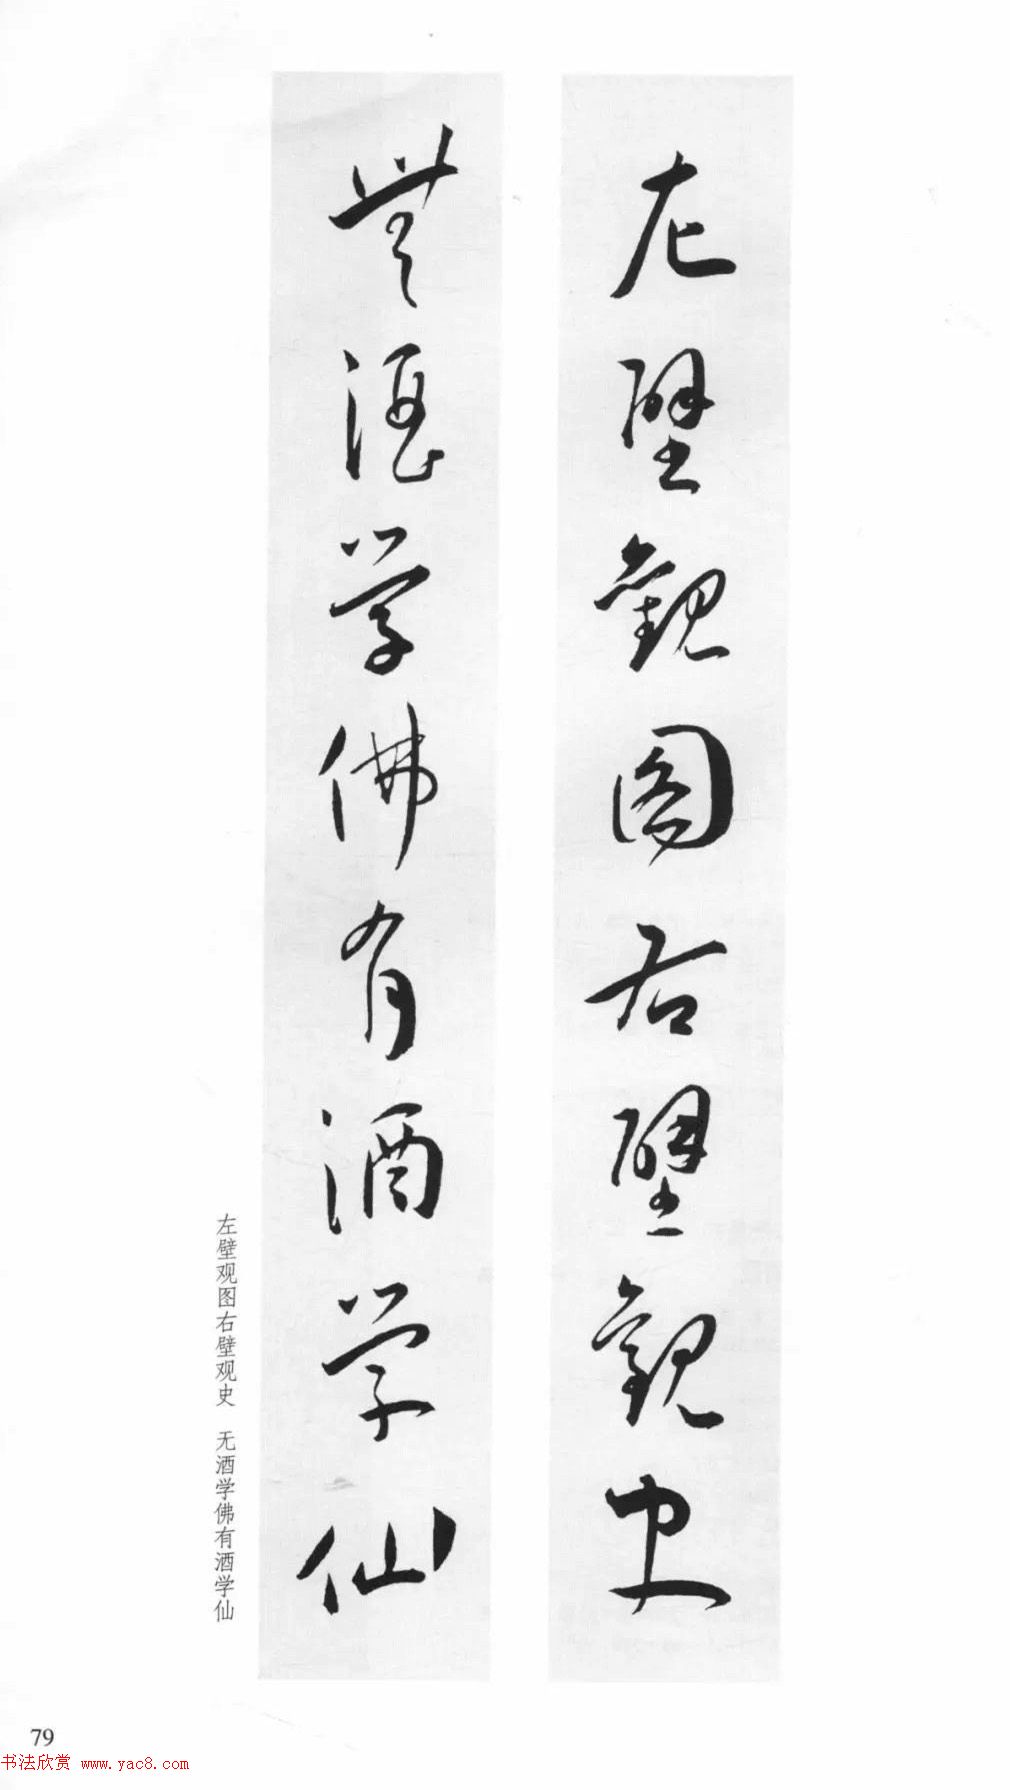 左壁觀图右壁觀史
無酒学佛有酒学仙
左壁观图右壁观史　无酒学佛有酒学仙
79
书法欣赏 www.yac8.com